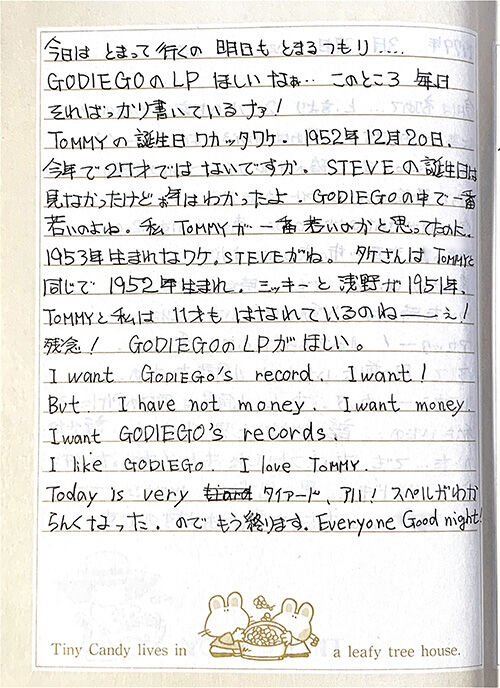 今日は とまって行くの 明日も とまるつもり....
GODIEGOのLP ほしいなぁ… このところ 毎日
そればっかり書いているナァ!
TOMMYの 誕生日 ワカッタワケ. 1952年12月20日.
今年で27才では ないですか. STEVEの誕生日は
見なかったけどお年はわかったよ. GODIEGOの中で一番
若いのよね. 私 TOMMYが 一番 若いのかと思ってたのに.
1953年生まれなワケ, STEVEがね. タケさんは TOMMYと
同じで 1952年生まれ. ミッキーと 浅野が1951年.
TOMMYと私は 11才も はなれているのね――ぇ!
残念! GODIEGOのLPがほしい。
I want GODIEGO's record. I want!
But. I have not money. I want money.
I want GODIEGO's records.
I like GODIEGO. I love TOMMY.
Today is very タイアード、アハ! スペルがわか
らんくなった. ので もう終ります. Everyone Good night!
Tiny Candy lives in a leafy tree house.